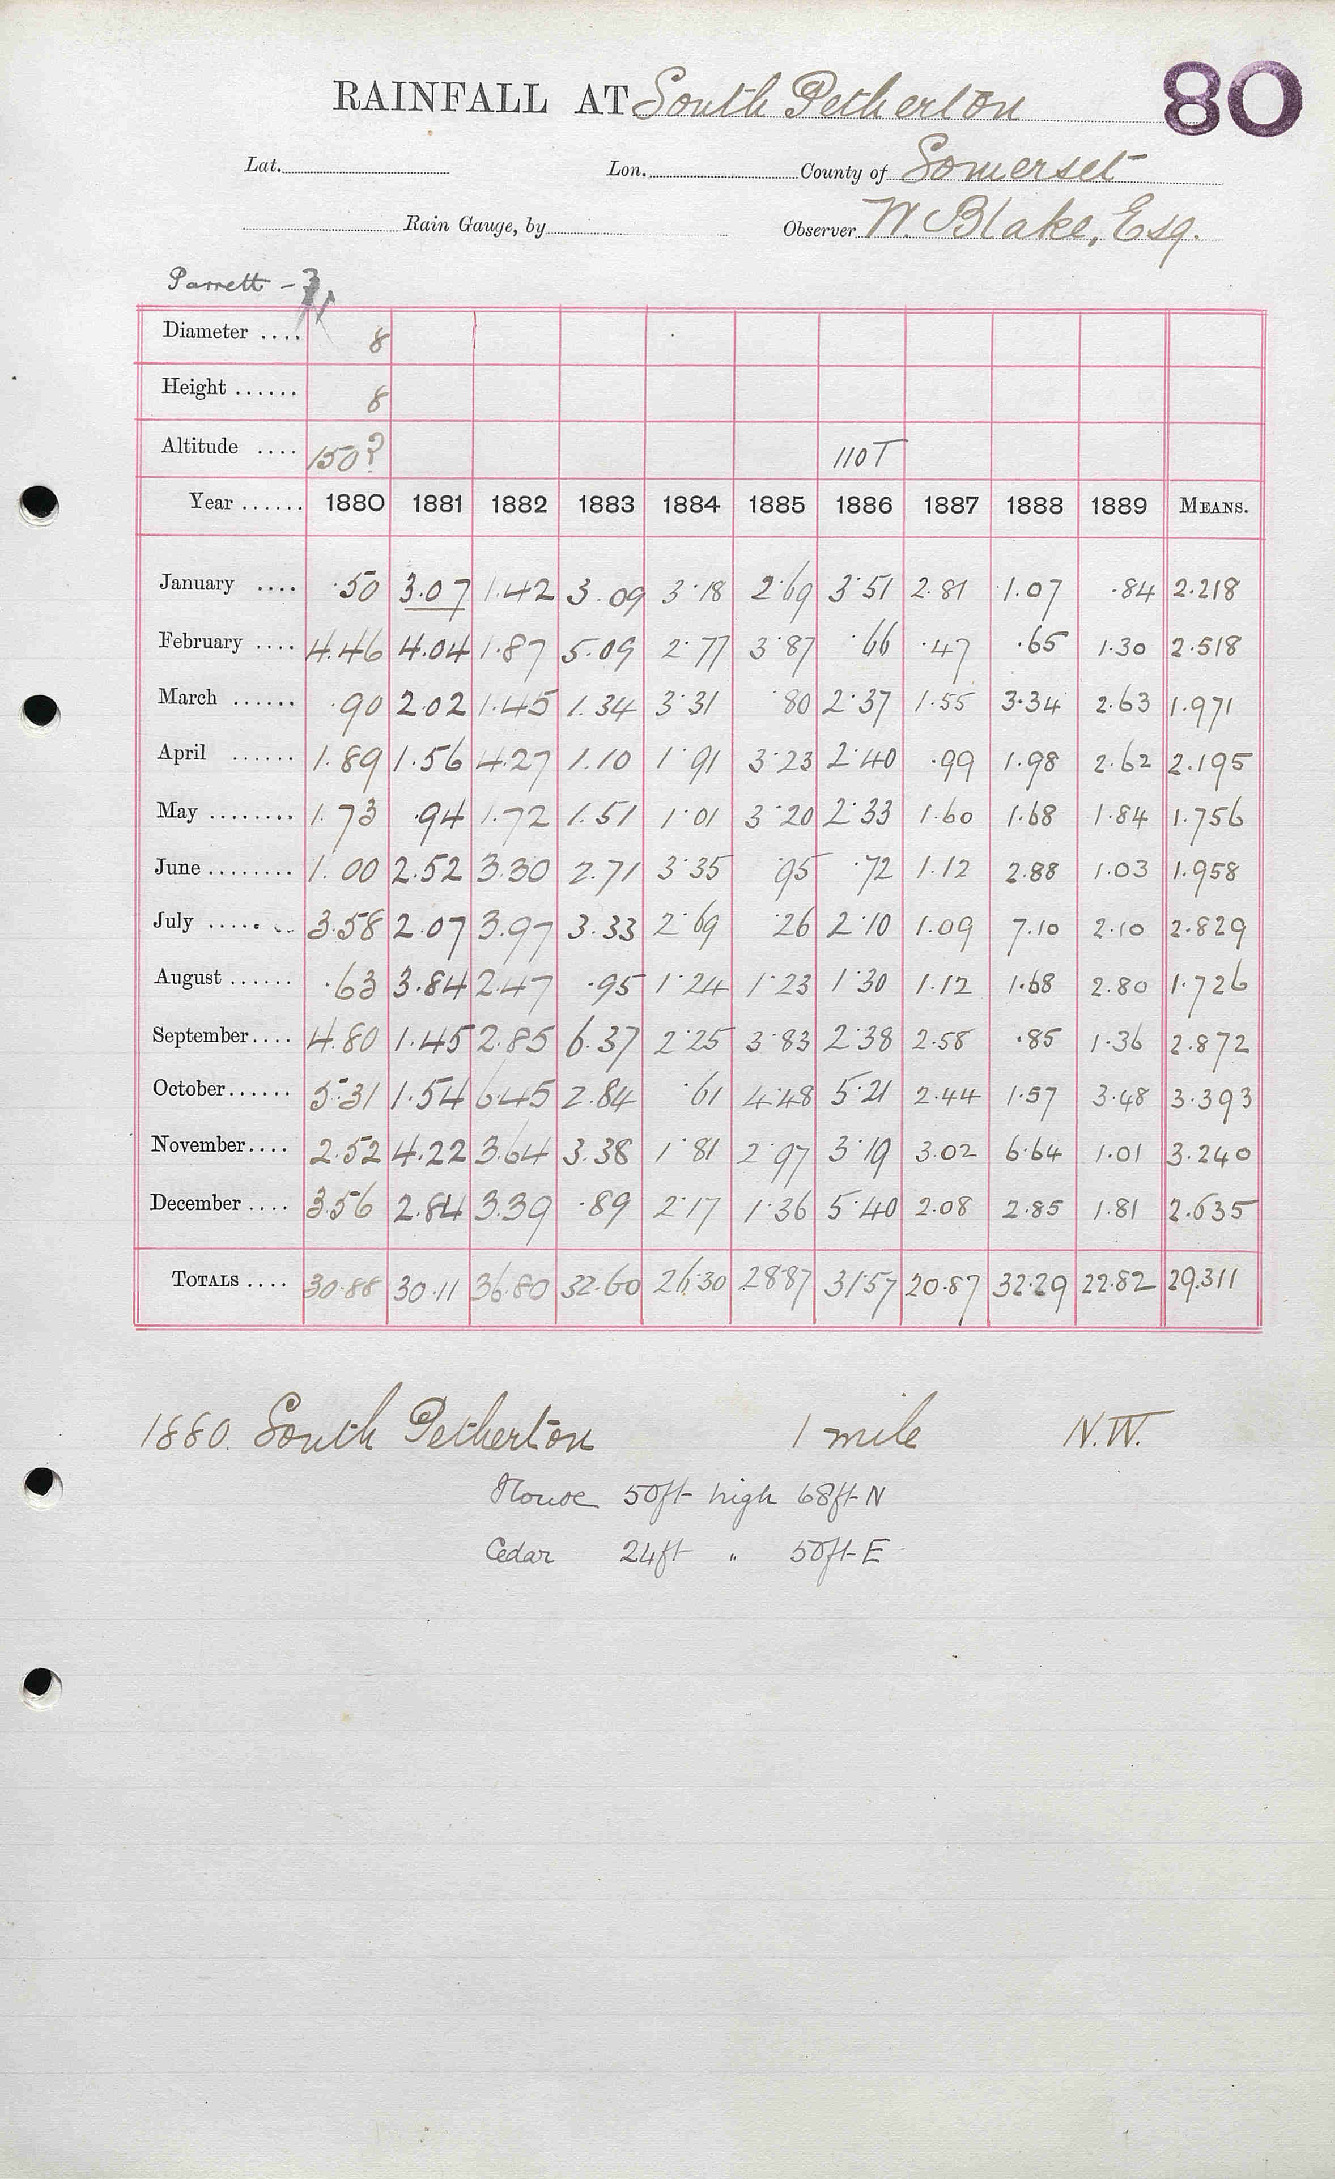 RAINFALL AT South Petherton 80
Lat. Lon. County of Somerset
Rain Gauge, by Observer W. Blake, Esq.
Parrett -
Diameter .... 8
Height ...... 8
Altitude .... 150? 110T
Year ...... 1880 1881 1882 1883 1884 1885 1886 1887 1888 1889 MEANS.
January .... .50 3.07 1.42 3.09 3.18 2.69 3.51 2.81 1.07 .84 2.218
February .... 4.46 4.04 1.87 5.09 2.77 3.87 .66 .47 .65 1.30 2.518
March ...... .90 2.02 1.45 1.34 3.31 .80 2.37 1.55 3.34 2.63 1.971
April ...... 1.89 1.56 4.27 1.10 1.91 3.23 2.40 .99 1.98 2.62 2.195
May ........ 1.73 .94 1.72 1.51 1.01 3.20 2.33 1.60 1.68 1.84 1.756
June ........ 1.00 2.52 3.30 2.71 3.35 .95 .72 1.12 2.88 1.03 1.958
July ........ 3.58 2.07 3.97 3.33 2.69 .26 2.10 1.09 7.10 2.10 2.829
August ...... .63 3.84 2.47 .95 1.24 1.23 1.30 1.12 1.68 2.80 1.726
September .... 4.80 1.45 2.85 6.37 2.25 3.83 2.38 2.58 .85 1.36 2.872
October ...... 5.31 1.54 6.45 2.84 .61 4.48 5.21 2.44 1.57 3.48 3.393
November .... 2.52 4.22 3.64 3.38 1.81 2.97 3.19 3.02 6.64 1.01 3.240
December .... 3.56 2.84 3.39 .89 2.17 1.36 5.40 2.08 2.85 1.81 2.635
TOTALS .... 30.88 30.11 36.80 32.60 26.30 28.87 31.57 20.87 32.29 22.82 29.311
1880. South Petherton 1 mile N.W.
House 50ft high 68ft N
Cedar 24ft " 50ft E